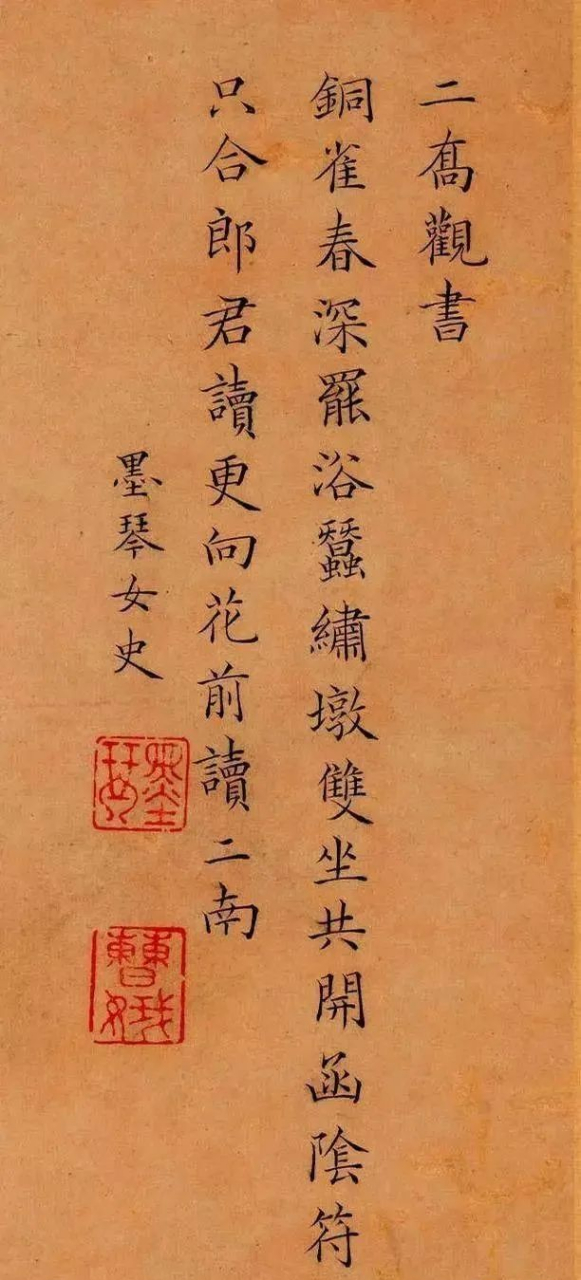 二喬觀書
銅雀春深罷浴蠶繡墩雙坐共開函陰符
只合郎君讀更向花前讀二南
墨琴女史
墨琴
曹娥